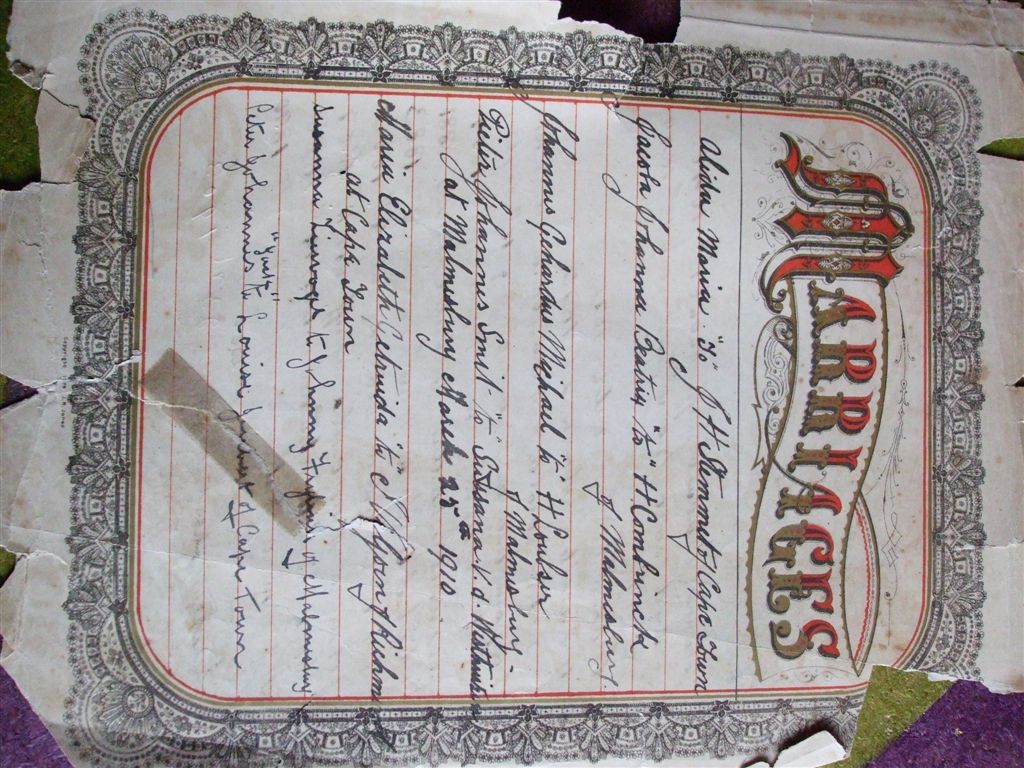 MARRIAGES
Alida Maria "to" J H Stemmet of Cape Town
Jacoba Johanna Beatrix "to" H Combrinck
of Malmesbury.
Johannes Gehardus Michael "to" H Loubser
Pieter Johannes Smit "to" Susanna v. d.
of Malmesbury -
at Malmesbury March 25th 1910
Maria Elizabeth Getruida "to"
at Cape Town
Susanna to Johnny of Malmesbury
"Gust"
Peter Johannes to Louisa of Cape Town
Copyright